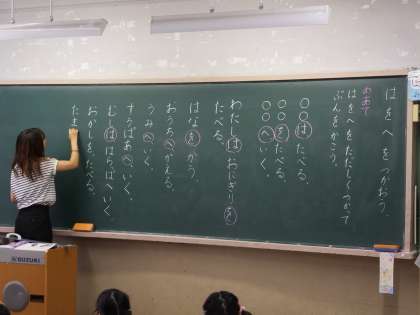 はをへをつかおう。
めあて
はをへをただしくつかって
ぶんをかこう。
○○はたべる。
○○をたべる。
○○へいく。
わたしはおにぎりを
たべる。
はなをかう。
おうちへかえる。
うみへいく。
へいく。
おかしをたべる。
たま
SUZUKI